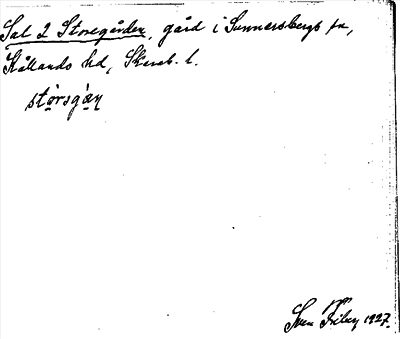 Sal 2 Storegården, gård i Sunnersbergs sn,
Kållands hd, Skarab. l.
stórsgàn
Sven Friberg 1927.